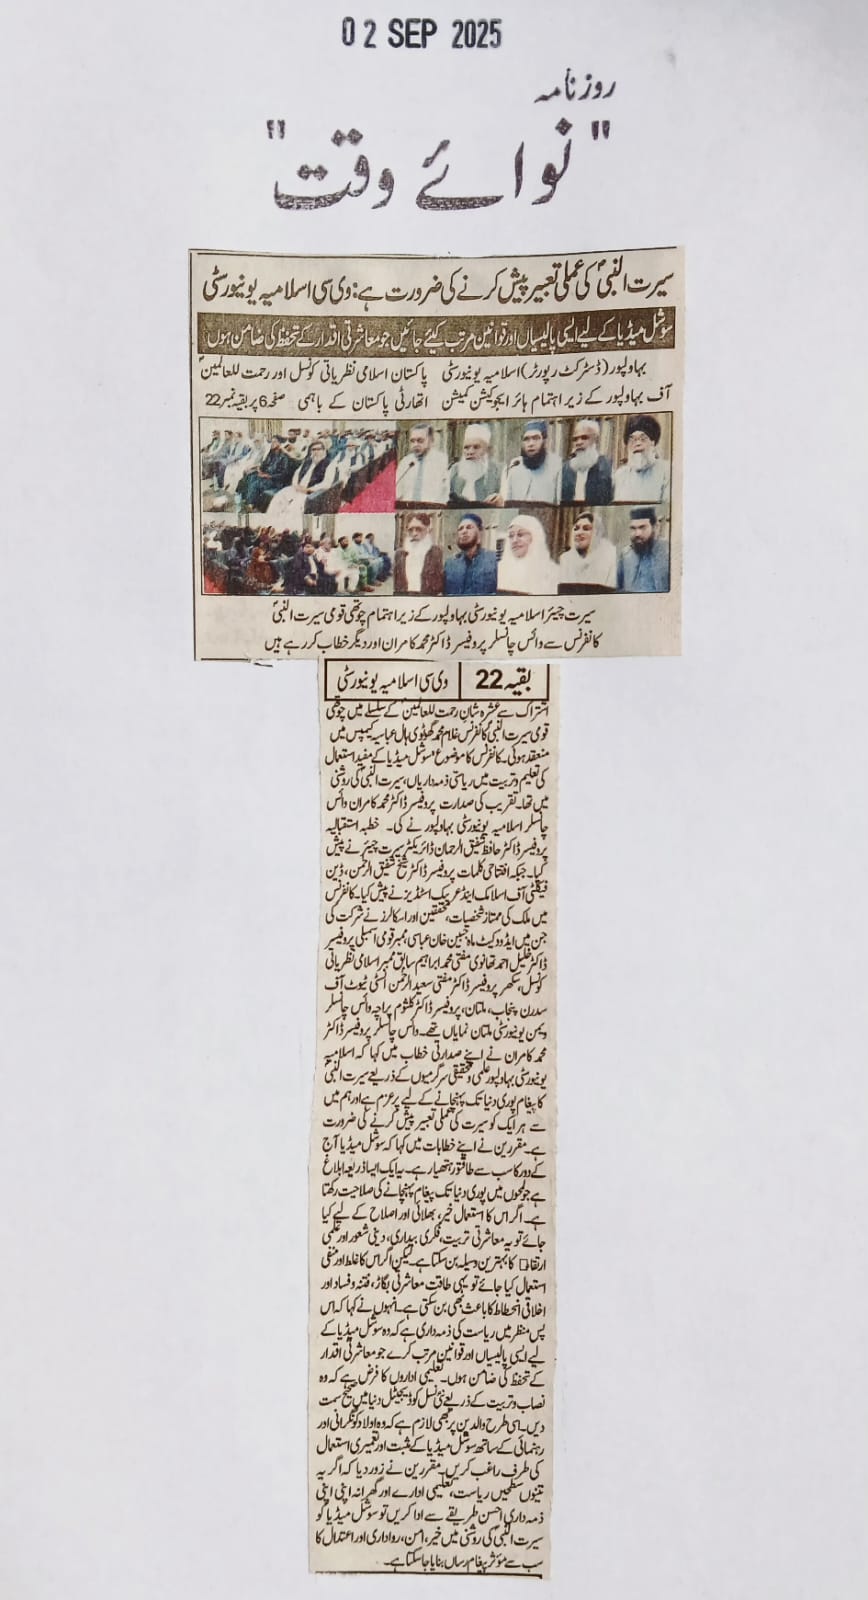 02 SEP 2025
روزنامہ
"نوائے وقت"
سیرت النبیؐ کی عملی تعبیر پیش کرنے کی ضرورت ہے: وی سی اسلامیہ یونیورسٹی
سوشل میڈیا کے لیے ایسی پالیسیاں اور قوانین مرتب کیئے جائیں جو معاشرتی اقدار کے تحفظ کی ضامن ہوں
بہاولپور (ڈسٹرکٹ رپورٹر) اسلامیہ یونیورسٹی
آف بہاولپور کے زیر اہتمام ہائر ایجوکیشن کمیشن
پاکستان اسلامی نظریاتی کونسل اور رحمت للعالمینؐ
اتھارٹی پاکستان کے باہمی صفحہ 6 پر بقیہ نمبر 22
سیرت چیئر اسلامیہ یونیورسٹی بہاولپور کے زیر اہتمام چوتھی قومی سیرت النبیؐ
کانفرنس سے وائس چانسلر پروفیسر ڈاکٹر محمد کامران اور دیگر خطاب کر رہے ہیں
بقیہ 22 وی سی اسلامیہ یونیورسٹی
اشتراک سے عشرہ شان رحمت للعالمینؐ کے سلسلے میں چوتھی
قومی سیرت النبیؐ کانفرنس غلام محمد گھوٹوی ہال عباسیہ کیمپس میں
منعقد ہوئی۔ کانفرنس کا موضوع سوشل میڈیا کے مفید استعمال
کی تعلیم و تربیت میں ریاستی ذمہ داریاں، سیرت النبیؐ کی روشنی
میں تھا۔ تقریب کی صدارت پروفیسر ڈاکٹر محمد کامران وائس
چانسلر اسلامیہ یونیورسٹی بہاولپور نے کی۔ خطبہ استقبالیہ
پروفیسر ڈاکٹر حافظ شفیق الرحمان ڈائریکٹر سیرت چیئر نے پیش
کیا۔ جبکہ افتتاحی کلمات پروفیسر ڈاکٹر شیخ شفیق الرحمن، ڈین
فیکلٹی آف اسلامک اینڈ عریبک اسٹڈیز نے پیش کیا۔ کانفرنس
میں ملک کی ممتاز شخصیات، محققین اور اسکالرز نے شرکت کی
جن میں ایڈووکیٹ ماہ جبین خان عباسی، ممبر قومی اسمبلی پروفیسر
ڈاکٹر خلیل احمد تھانوی مفتی محمد ابراہیم سابق ممبر اسلامی نظریاتی
کونسل، سکھر پروفیسر ڈاکٹر مفتی سعید الرحمن انسٹی ٹیوٹ آف
سدرن پنجاب، ملتان، پروفیسر ڈاکٹر کلثوم پراچہ وائس چانسلر
ویمن یونیورسٹی ملتان نمایاں تھے۔ وائس چانسلر پروفیسر ڈاکٹر
محمد کامران نے اپنے صدارتی خطاب میں کہا کہ اسلامیہ
یونیورسٹی بہاولپور علمی و تحقیقی سرگرمیوں کے ذریعے سیرت النبیؐ
کا پیغام پوری دنیا تک پہنچانے کے لیے پرعزم ہے اور ہم میں
سے ہر ایک کو سیرت کی عملی تعبیر پیش کرنے کی ضرورت
ہے۔ مقررین نے اپنے خطابات میں کہا کہ سوشل میڈیا آج
کے دور کا سب سے طاقتور ہتھیار ہے۔ یہ ایک ایسا ذریعہ ابلاغ
ہے جو لمحوں میں پوری دنیا تک پیغام پہنچانے کی صلاحیت رکھتا
ہے۔ اگر اس کا استعمال خیر، بھلائی اور اصلاح کے لیے کیا
جائے تو یہ معاشرتی تربیت، فکری بیداری، دینی شعور اور علمی
ارتقا□ کا بہترین وسیلہ بن سکتا ہے۔ لیکن اگر اس کا غلط اور منفی
استعمال کیا جائے تو یہی طاقت معاشرتی بگاڑ، فتنہ و فساد اور
اخلاقی انحطاط کا باعث بھی بن سکتی ہے۔ انہوں نے کہا کہ اس
پس منظر میں ریاست کی ذمہ داری ہے کہ وہ سوشل میڈیا کے
لیے ایسی پالیسیاں اور قوانین مرتب کرے جو معاشرتی اقدار
کے تحفظ کی ضامن ہوں۔ تعلیمی اداروں کا فرض ہے کہ وہ
نصاب و تربیت کے ذریعے نئی نسل کو ڈیجیٹل دنیا میں صحیح سمت
دیں۔ اسی طرح والدین پر بھی لازم ہے کہ وہ اولاد کو نگرانی اور
رہنمائی کے ساتھ سوشل میڈیا کے مثبت اور تعمیری استعمال
کی طرف راغب کریں۔ مقررین نے زور دیا کہ اگر یہ
تینوں سطحیں ریاست، تعلیمی ادارے اور گھرانہ اپنی اپنی
ذمہ داری احسن طریقے سے ادا کریں تو سوشل میڈیا کو
سیرت النبیؐ کی روشنی میں خیر، امن، رواداری اور اعتدال کا
سب سے مؤثر پیغام رساں بنایا جا سکتا ہے۔